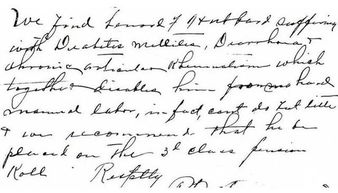 We find Leonard F Hubbard suffering
with Diabetis Mellitis, Diarrhoea &
chronic articular Rheumatism which
together disables him from hard
manual labor, in fact, cant do but little
& we recommend that he be
placed on the 3d class pension
Roll Resptly